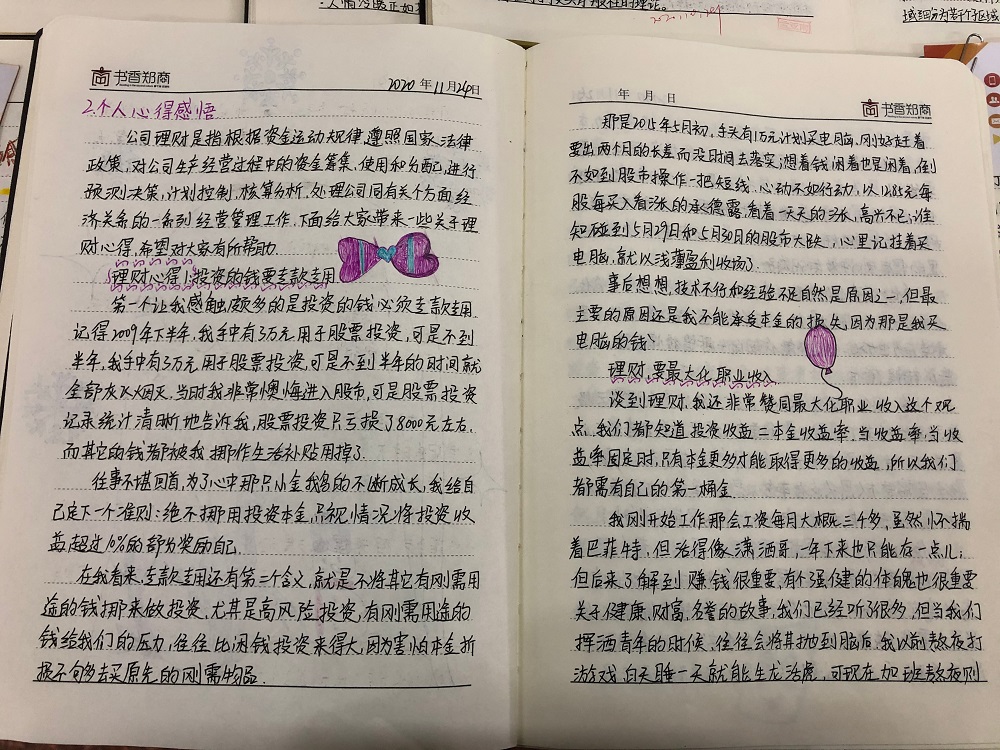 2020.11.24
域细分为若干个区域
书香知商
2020年11月24日
2.个人心得感悟
公司理财是指根据资金运动规律,遵照国家法律
政策,对公司生产经营过程中的资金筹集、使用和分配,进行
预测决策,计划控制,核算分析,处理公司同有关个方面经
济关系的一系列经营管理工作,下面给大家带来一些关于理
财心得,希望对大家有所帮助.
理财心得1:投资的钱要专款专用
第一个让我感触颇多的是投资的钱必须专款专用
记得2009年下半年,我手中有3万元用于股票投资,可是不到
半年,我手中有3万元用于股票投资,可是不到半年的时间就
全部灰飞烟灭,当时我非常懊悔进入股市,可是股票投资
记录统计清晰地告诉我,股票投资只亏损了8000元左右,
而其它的钱都被我挪作生活补贴用掉了.
往事不堪回首,为了心中那只小金鹅的不断成长,我给自
己定下一个准则:绝不挪用投资本金,只视情况将投资收
益超过10%的部分奖励自己.
在我看来,专款专用还有第二个含义,就是不将其它有刚需用
途的钱挪来做投资,尤其是高风险投资,有刚需用途的
钱给我们的压力,往往比闲钱投资来得大,因为害怕本金折
损不够去买原先的刚需物品.
年 月 日
书香知商
那是2015年5月初,手头有1万元计划买电脑,刚好赶着
要出两个月的长差而没时间去落实;想着钱闲着也是闲着,倒
不如到股市操作一把短线.心动不如行动,以12.85元每
股每买入看涨的承德露,看着一天天的涨,高兴不已;谁
知碰到5月29日和5月30日的股市大跌,心里记挂着买
电脑,就以浅薄盈利收场了.
事后想想,技术不行和经验不足自然是原因之一,但最
主要的原因还是我不能承受本金的损失,因为那是我买
电脑的钱!
理财,要最大化职业收入
谈到理财,我还非常赞同最大化职业收入这个观
点,我们都知道投资收益=本金收益率,当收益率,当收
益率固定时,只有本金更多才能取得更多的收益,所以我们
都需有自己的第一桶金.
我刚开始工作那会工资每月大概三千多,虽然怀揣
着巴菲特,但活得像潇洒哥,一年下来也只能存一点儿;
但后来了解到赚钱很重要,有个强健的体魄也很重要
关于健康,财富,名誉的故事,我们已经听了很多,但当我们
挥洒青年的时候,往往会将其抛到脑后,我以前熬夜打
游戏,白天睡一天就能生龙活虎,可现在加班熬夜则